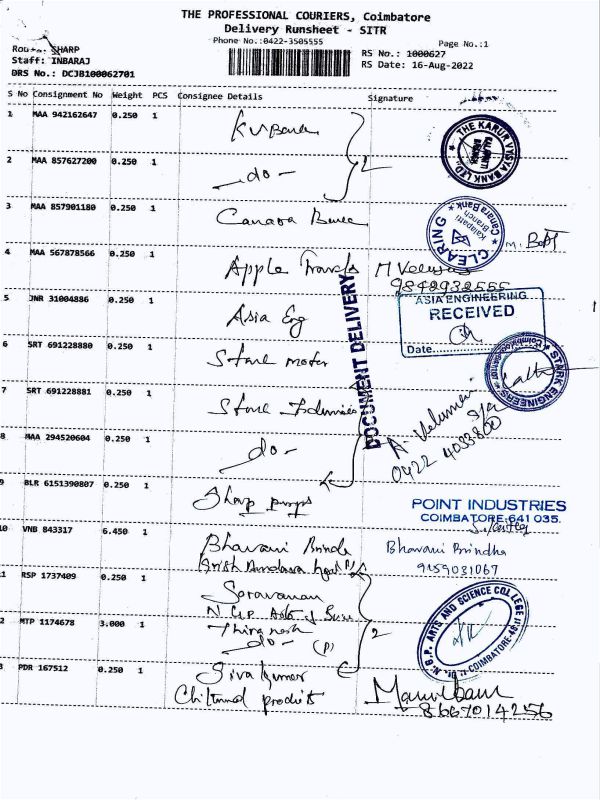 THE PROFESSIONAL COURIERS, Coimbatore
Delivery Runsheet - SITR
Phone No.:0422-3505555
Page No.:1
Route: SHARP
Staff: INBARAJ
DRS No.: DCJB100062701
RS No.: 1000627
RS Date: 16-Aug-2022
S No Consignment No Weight PCS Consignee Details Signature
1 MAA 942162647 0.250 1
THE KARUR VYSYA BANK LTD.
2 MAA 857627200 0.250 1 -do- 2
3 MAA 857901180 0.250 1 Canara
CLEARING Canara Bank Kalapatti Branch
4 MAA 567878566 0.250 1 Apple
9842932555
5 JNR 31004886 0.250 1 Asia Eng
ASIA ENGINEERING
RECEIVED
Date
DOCUMENT DELIVERY
6 SRT 691228880 0.250 1
STARK ENGINEERS
7 SRT 691228881 0.250 1
A Velumani
0422 4033800
8 MAA 294520604 0.250 1 -do-
9 BLR 6151390807 0.250 1 Sharp pumps
POINT INDUSTRIES
COIMBATORE-641 035.
10 VNB 843317 6.450 1 Bhavani Brindha Bhavani Brindha
9159031067
11 RSP 1737409 0.250 1 Saravanan
N.G.P. ARTS AND SCIENCE COLLEGE COIMBATORE-48
12 MTP 1174678 3.000 1
-do- (P) 2
13 PDR 167512 0.250 1 Siva Kumar
products
8667014256